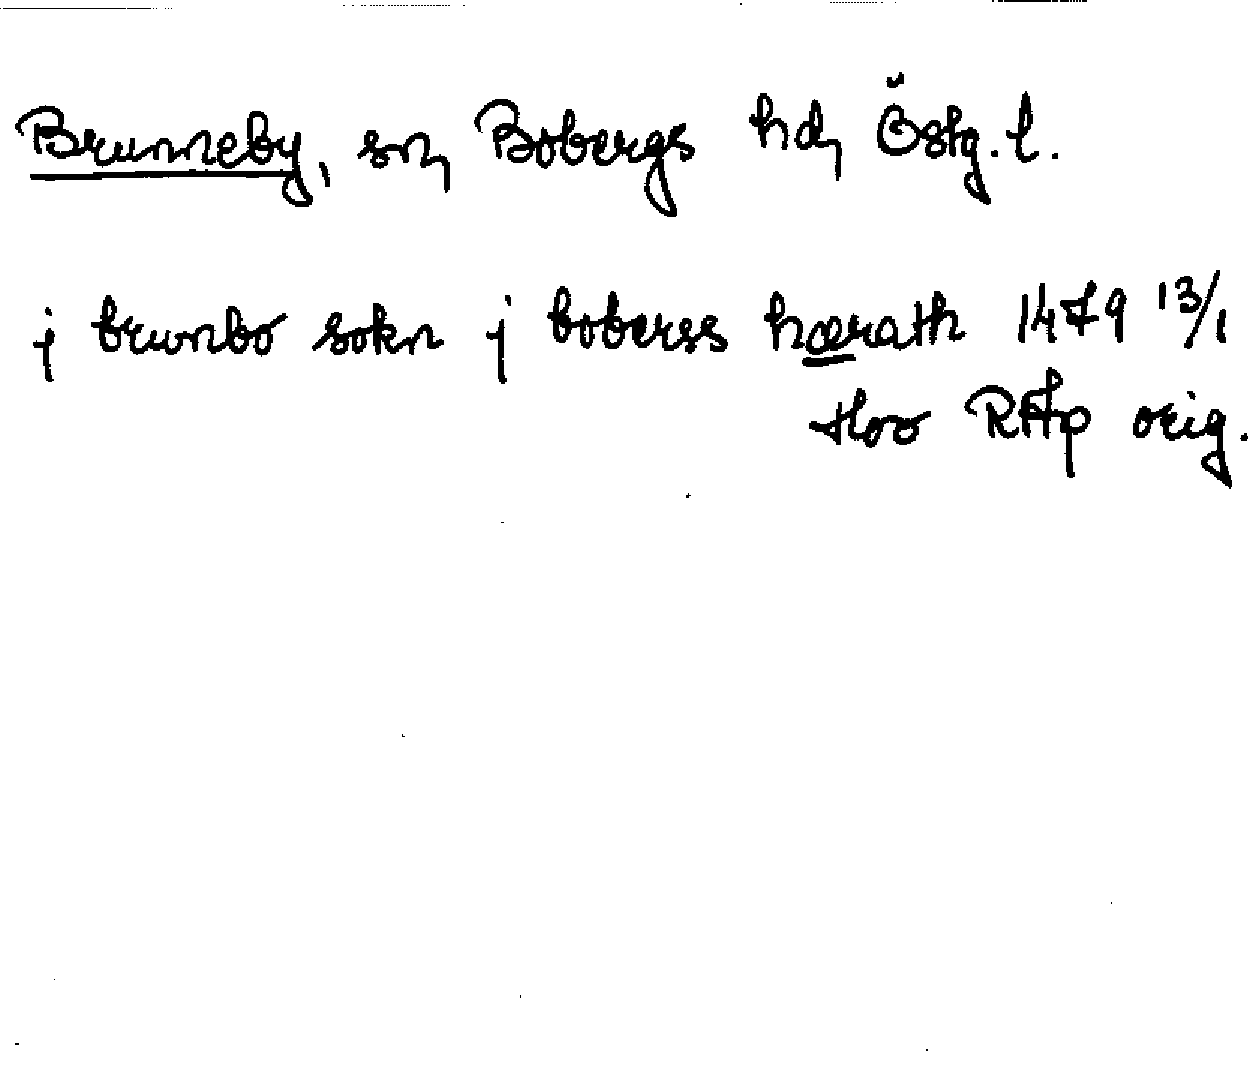 Brunneby, sn, Bobergs hd, Östg. l.
j brunbo sokn j boberss hærath 1479 13/1
Hoo RAp orig.